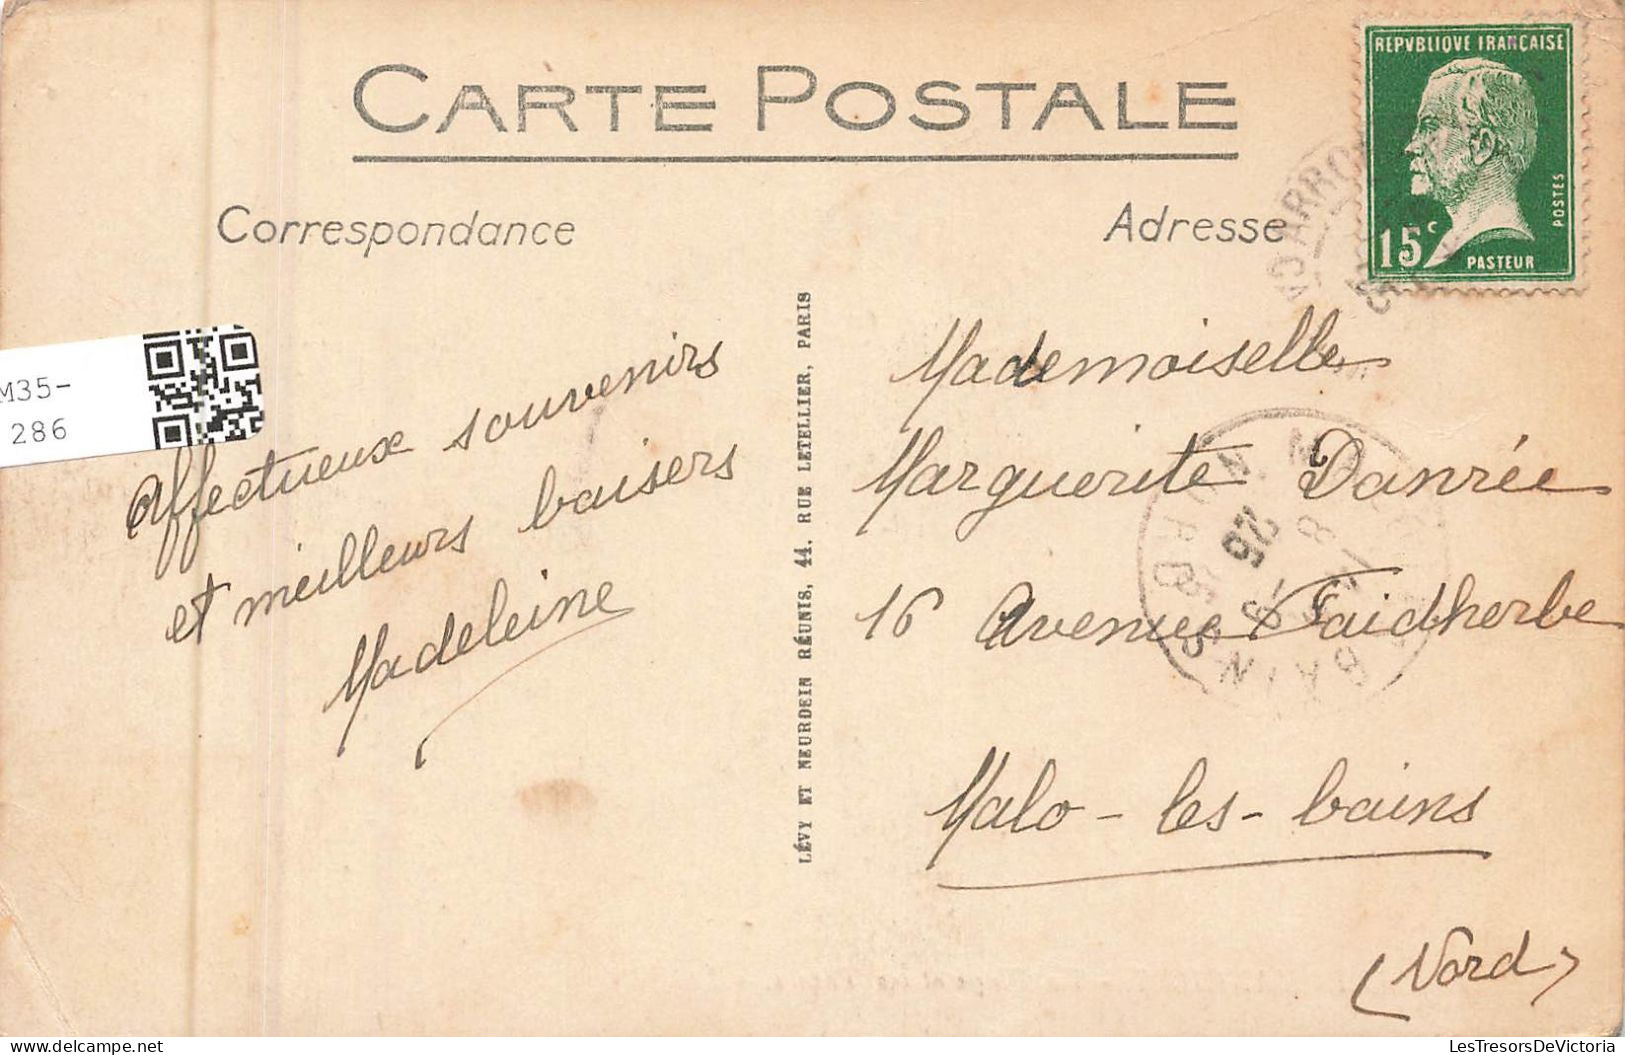 CARTE POSTALE
Correspondance
Adresse
REPVBLIQVE FRANÇAISE
15c
POSTES
PASTEUR
M35-
286
Affectueux souvenirs
et meilleurs baisers
Madeleine
LÉVY ET NEURDEIN RÉUNIS, 44, RUE LETELLIER, PARIS
Mademoiselle
Marguerite Danrée
16 Avenue Faidherbe
Malo-les-bains
(Nord)
BAINS
NORD
26
LesTresorsDeVictoria
delcampe.net